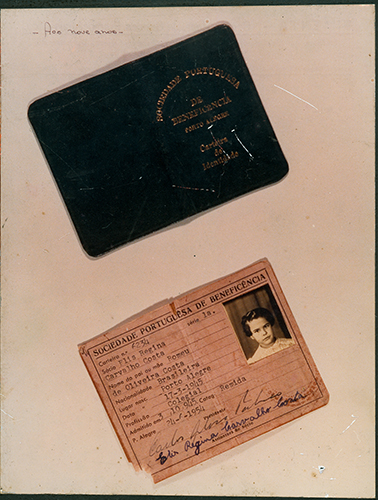 - Aos nove anos -
SOCIEDADE PORTUGUESA
DE
BENEFICENCIA
PORTO ALEGRE
Carteira
de
Identidade
SOCIEDADE PORTUGUESA DE BENEFICÊNCIA
Carteira n.º 6234 série 1a.
Sócio Elis Regina
Carvalho Costa
Nome do pai ou mãe Romeu
de Oliveira Costa
Nacionalidade Brasileira
Lugar nasc. Porto Alegre
Data 17-3-1945
Profissão Colegial
Admitido em Categ. Remida
P. Alegre,
Elis Regina Carvalho Costa